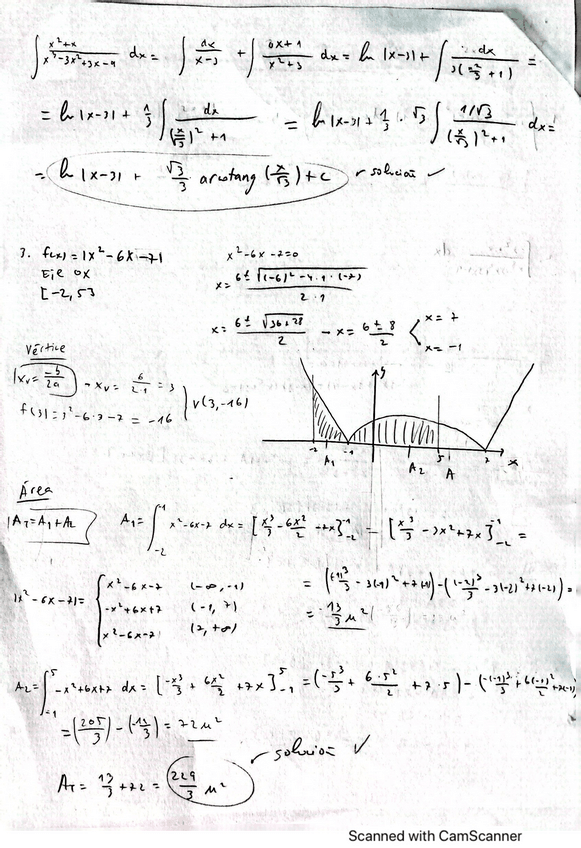 ∫ x²+x / x³-3x²+3x-9 dx = ∫ 1x / x-3 + ∫ 0x+1 / x²+3 dx = ln |x-3| + ∫ dx / 3(x²/3 + 1) =
= ln |x-3| + 1/3 ∫ dx / (x/√3)² + 1 = ln |x-3| + 1/3 · √3 ∫ 1/√3 / (x/√3)² + 1 dx =
= ln |x-3| + √3/3 arcotang (x/√3) + C solución ✓
3. f(x) = |x² - 6x - 7|
Eje OX
[-2, 5]
x² - 6x - 7 = 0
x = 6 ± √(-6)² - 4 · 1 · (-7) / 2 · 1
x = 6 ± √36 + 28 / 2 → x = 6 ± 8 / 2 x = 7 x = -1
Vértice
xv = -b / 2a → xv = 6 / 2·1 = 3
f(3) = 3² - 6·3 - 7 = -16 V(3, -16)
y
-2 -1 5 7 x
A1 A2 A
Área
AT = A1 + A2 A1 = ∫ -2 -1 x² - 6x - 7 dx = [x³/3 - 6x²/2 - 7x] -1 -2 = [x³/3 - 3x² + 7x] -1 -2 =
|x² - 6x - 7| =
x² - 6x - 7 (-∞, -1)
-x² + 6x + 7 (-1, 7)
x² - 6x - 7 (7, +∞)
= ((-1)³/3 - 3(-1)² + 7(-1)) - ((-2)³/3 - 3(-2)² + 7(-2)) =
= 13/3 u²
A2 = ∫ -1 5 -x² + 6x + 7 dx = [-x³/3 + 6x²/2 + 7x] 5 -1 = (-5³/3 + 6·5²/2 + 7·5) - (-(-1)³/3 + 6(-1)²/2 + 7(-1))
= (205/3) - (-11/3) = 72 u²
AT = 13/3 + 72 = 229/3 u² solución ✓
Scanned with CamScanner